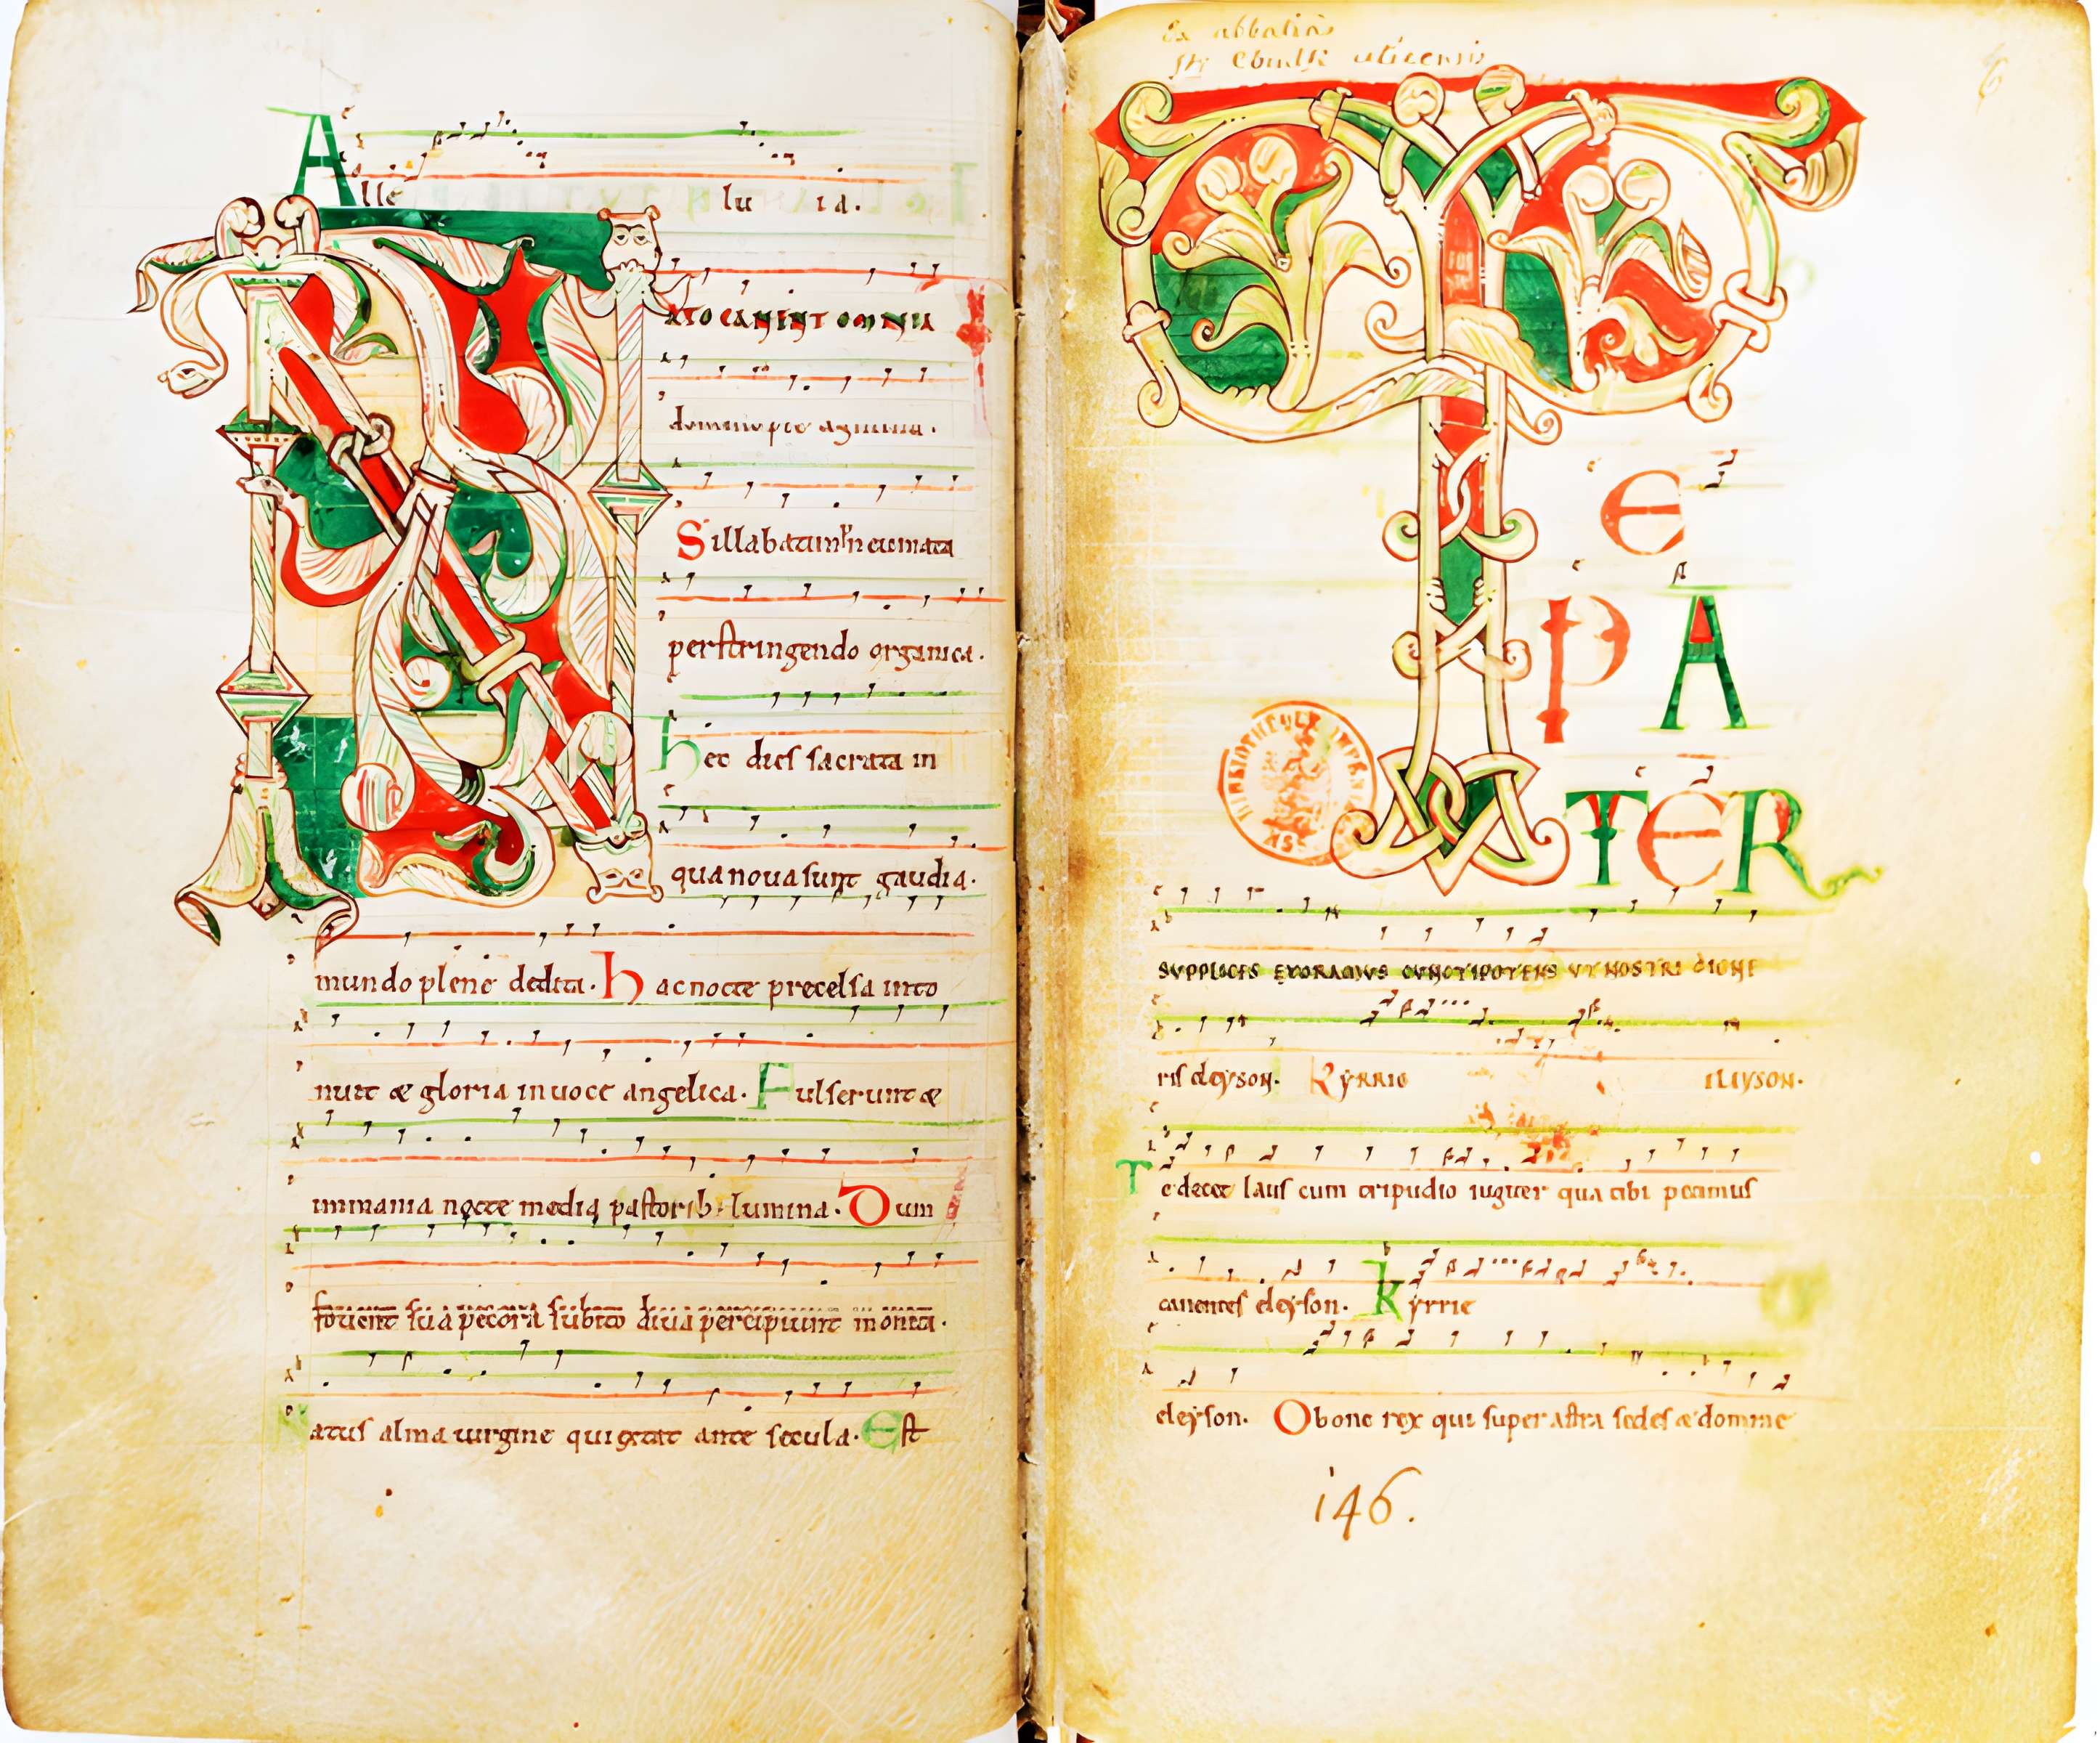 Alle lu ia.
N
ATO CANUNT OMNIA
domino pie agmina.
Sillabatim neumata
perstringendo organica.
hec dies sacrata in
qua noua sunt gaudia.
mundo plene dedita. hac nocte precelsa into
nuit & gloria in uoce angelica. Fulserunt &
inmania nocte media pastorib; lumina. Dum
fouent sua pecora subito diua percipiunt monita.
Natus alma uirgine qui extat ante secula. Est
Ex abbatia
sti Ebrulfi uticensis
6
T
E
PA
TER
SUPPLICES EXORAMUS CUNCTIPOTENS UT NOSTRI DIGNE
ris eleyson. KYRRIE ELEYSON.
Te decet laus cum tripudio iugiter qua tibi petimus
canentes eleyson. Kyrrie
eleyson. O bone rex qui super astra sedes & domine
146.